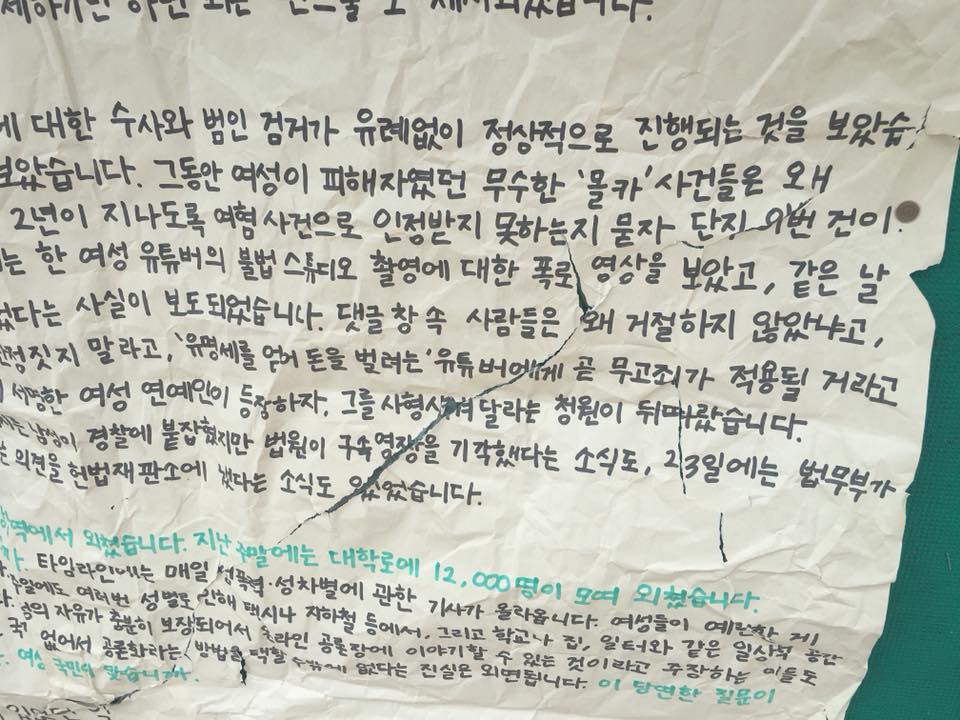 에 대한 수사와 범인 검거가 유례없이 정상적으로 진행되는 것을 보았습
보았습니다. 그동안 여성이 피해자였던 무수한 '몰카' 사건들은 왜
2년이 지나도록 여혐 사건으로 인정받지 못하는지 묻자 단지 9번 건이
는 한 여성 유튜버의 불법 스튜디오 촬영에 대한 폭로 영상을 보았고, 같은 날
없다는 사실이 보도되었습니다. 댓글 창 속 사람들은 왜 거절하지 않았냐고,
짓지 말라고, '유명세를 얻어 돈을 벌려는' 유튜버에게 곧 무고죄가 적용될 거라고
서명한 여성 연예인이 등장하자, 그를 사형시켜달라는 청원이 뒤따랐습니다.
남성이 경찰에 붙잡혔지만 법원이 구속영장을 기각했다는 소식도, 23일에는 법무부가
의견을 헌법재판소에 냈다는 소식도 있었습니다.
역에서 외쳤습니다. 지난 주말에는 대학로에 12,000명이 모여 외쳤습니다.
타임라인에는 매일 성폭력·성차별에 관한 기사가 올라옵니다. 여성들이 예민한 게
주일에도 여러번 성별로 인해 택시나 지하철 등에서, 그리고 학교나 집, 일터와 같은 일상적 공간
의 자유가 충분히 보장되어서 온라인 공론장에 이야기할 수 있는 것이라고 주장하는 이들도
없어서 공론화라는 방법을 택할 수밖에 없다는 진실은 외면됩니다. 이 당연한 질문이
여성 국민이 맞습니까.